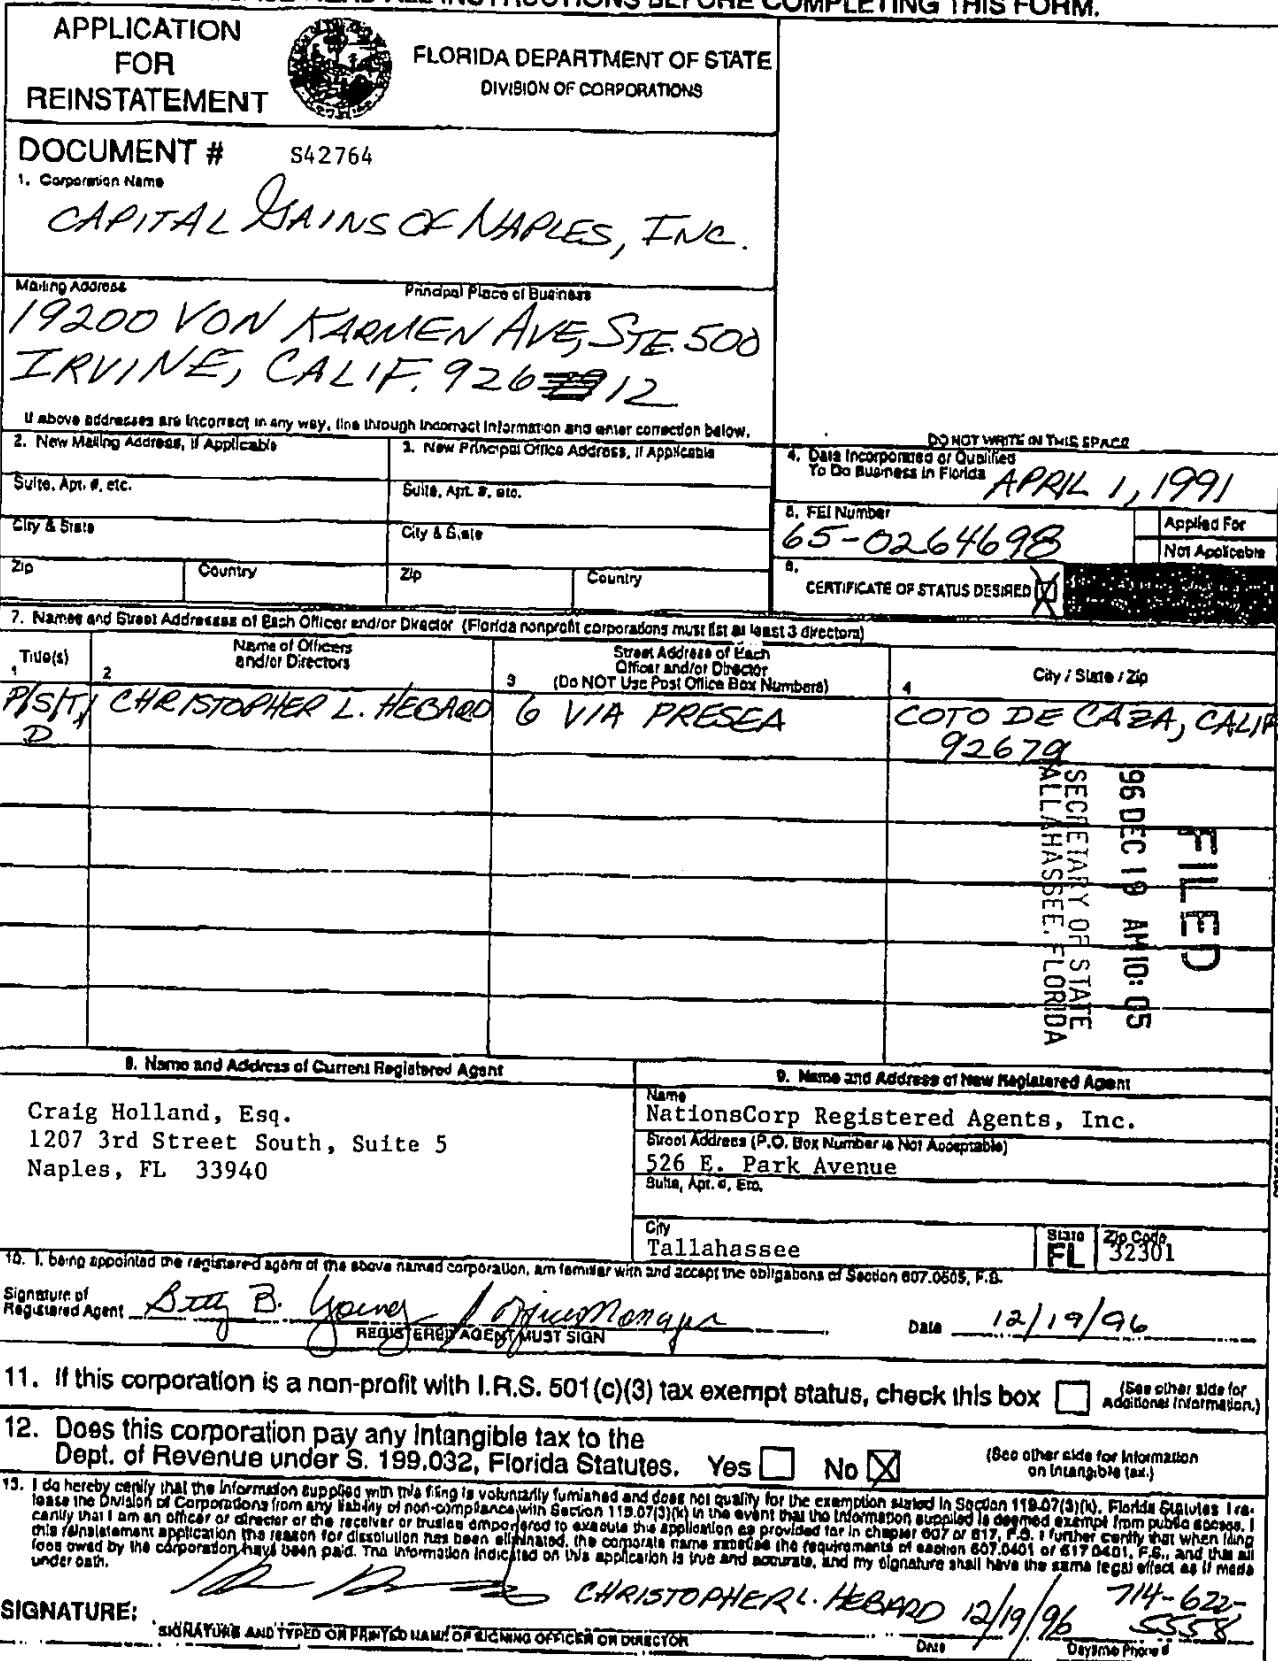 INSTRUCTIONS BEFORE COMPLETING THIS FORM.
APPLICATION
FOR
REINSTATEMENT
FLORIDA DEPARTMENT OF STATE
DIVISION OF CORPORATIONS
DOCUMENT # S42764
1. Corporation Name
CAPITAL GAINS OF NAPLES, INC.
Mailing Address Principal Place of Business
19200 VON KARMEN AVE, STE. 500
IRVINE, CALIF. 92612
If above addresses are incorrect in any way, line through incorrect information and enter correction below.
2. New Mailing Address, If Applicable
3. New Principal Office Address, If Applicable
Suite, Apt. #, etc.
Suite, Apt. #, etc.
City & State
City & State
Zip Country
Zip Country
DO NOT WRITE IN THIS SPACE
4. Date Incorporated or Qualified
To Do Business in Florida APRIL 1, 1991
5. FEI Number
65-0264698
Applied For
Not Applicable
6.
CERTIFICATE OF STATUS DESIRED
7. Names and Street Addresses of Each Officer and/or Director (Florida nonprofit corporations must list at least 3 directors)
1 Title(s)
2 Name of Officers and/or Directors
3 Street Address of Each Officer and/or Director (Do NOT Use Post Office Box Numbers)
4 City / State / Zip
P/S/T/ CHRISTOPHER L. HEBARD 6 VIA PRESEA COTO DE CAZA, CALIF
D 92679
FILED
96 DEC 19 AM 10: 05
SECRETARY OF STATE
TALLAHASSEE, FLORIDA
8. Name and Address of Current Registered Agent
Craig Holland, Esq.
1207 3rd Street South, Suite 5
Naples, FL 33940
9. Name and Address of New Registered Agent
Name
NationsCorp Registered Agents, Inc.
Street Address (P.O. Box Number is Not Acceptable)
526 E. Park Avenue
Suite, Apt. #, Etc.
City
Tallahassee
State
FL
Zip Code
32301
10. I, being appointed the registered agent of the above named corporation, am familiar with and accept the obligations of Section 607.0505, F.S.
Signature of
Registered Agent Betty B. Young / Office Manager
REGISTERED AGENT MUST SIGN
Date 12/19/96
11. If this corporation is a non-profit with I.R.S. 501(c)(3) tax exempt status, check this box
(See other side for
Additional Information.)
12. Does this corporation pay any intangible tax to the
Dept. of Revenue under S. 199.032, Florida Statutes. Yes No X
(See other side for information
on intangible tax.)
13. I do hereby certify that the information supplied with this filing is voluntarily furnished and does not qualify for the exemption stated in Section 119.07(3)(k), Florida Statutes. I re-
lease the Division of Corporations from any liability of non-compliance with Section 119.07(3)(k) in the event that the information supplied is deemed exempt from public access. I
certify that I am an officer or director or the receiver or trustee empowered to execute this application as provided for in chapter 607 or 617, F.S. I further certify that when filing
this reinstatement application the reason for dissolution has been eliminated, the corporate name satisfies the requirements of section 607.0401 or 617.0401, F.S., and that all
fees owed by the corporation have been paid. The information indicated on this application is true and accurate, and my signature shall have the same legal effect as if made
under oath.
SIGNATURE: CHRISTOPHER L. HEBARD 12/19/96 714-622-
5558
SIGNATURE AND TYPED OR PRINTED NAME OF SIGNING OFFICER OR DIRECTOR
Date
Daytime Phone #